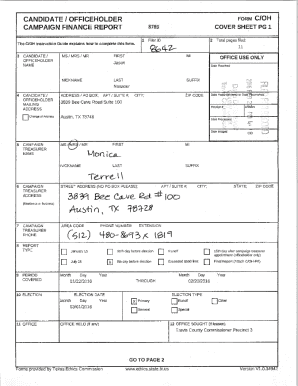 CANDIDATE / OFFICEHOLDER
CAMPAIGN FINANCE REPORT
8780
FORM C/OH
COVER SHEET PG 1
The C/OH Instruction Guide explains how to complete this form.
1 Filer ID
8642
2 Total pages filed:
11
3 CANDIDATE /
OFFICEHOLDER
NAME
MS / MRS / MR FIRST MI
Jason
NICKNAME LAST SUFFIX
OFFICE USE ONLY
Date Received
4 CANDIDATE /
OFFICEHOLDER
MAILING
ADDRESS
Change of Address
ADDRESS / PO BOX; APT / SUITE #; CITY; ZIP CODE
3839 Bee Cave Road Suite 100
Austin, TX 78746
5 CAMPAIGN
TREASURER
NAME
MS / MRS / MR FIRST MI
Monica
NICKNAME LAST SUFFIX
Terrell
6 CAMPAIGN
TREASURER
ADDRESS
(Residence or Business)
STREET ADDRESS (NO PO BOX PLEASE); APT / SUITE #; CITY; STATE; ZIP CODE
3839 Bee Cave Rd #100
Austin, TX 78728
7 CAMPAIGN
TREASURER
PHONE
AREA CODE PHONE NUMBER EXTENSION
(512) 480-8693 x 1819
8 REPORT
TYPE
January 15
30th day before election
Runoff
July 15
8th day before election
Exceeded $500 limit
Final Report (Attach C/OH - FR)
9 PERIOD
COVERED
Month Day Year
01/22/2016
THROUGH
Month Day Year
02/20/2016
10 ELECTION
ELECTION DATE
Month Day Year
03/01/2016
ELECTION TYPE
Primary
Runoff
Other
General
Special
11 OFFICE
OFFICE HELD (if any)
12 OFFICE SOUGHT (if known)
Travis County Commissioner Precinct 3
GO TO PAGE 2
Forms provided by Texas Ethics Commission
www.ethics.state.tx.us